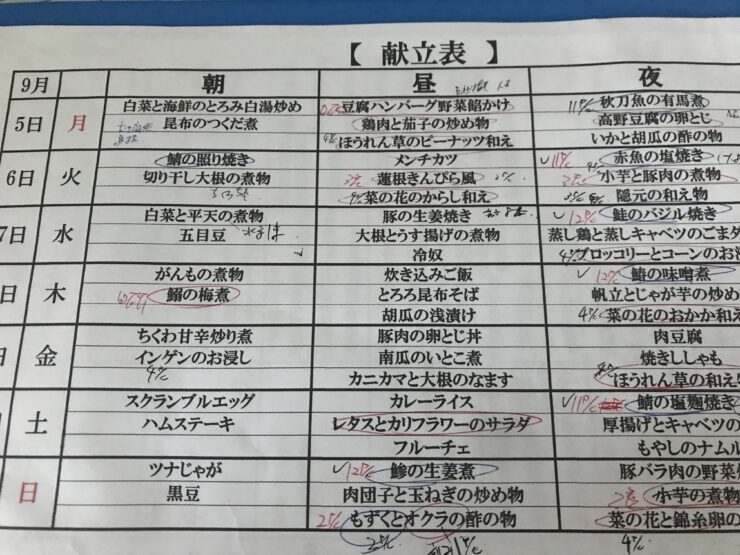 【 献立表 】
9月 朝 昼 夜
5日 月
白菜と海鮮のとろみ白湯炒め
昆布のつくだ煮
豆腐ハンバーグ野菜餡かけ
鶏肉と茄子の炒め物
ほうれん草のピーナッツ和え
11℃ 秋刀魚の有馬煮
高野豆腐の卵とじ
いかと胡瓜の酢の物
6日 火
鯖の照り焼き
切り干し大根の煮物
メンチカツ
蓮根きんぴら風
菜の花のからし和え
赤魚の塩焼き
小芋と豚肉の煮物
隠元の和え物
7日 水
白菜と平天の煮物
五目豆
豚の生姜焼き
大根とうす揚げの煮物
冷奴
鮭のバジル焼き
蒸し鶏と蒸しキャベツのごまダ
ブロッコリーとコーンのお
日 木
がんもの煮物
鰯の梅煮
炊き込みご飯
とろろ昆布そば
胡瓜の浅漬け
鰆の味噌煮
帆立とじゃが芋の炒め
菜の花のおかか和え
金
ちくわ甘辛炒り煮
インゲンのお浸し
豚肉の卵とじ丼
南瓜のいとこ煮
カニカマと大根のなます
肉豆腐
焼きししゃも
ほうれん草の和え
土
スクランブルエッグ
ハムステーキ
カレーライス
レタスとカリフラワーのサラダ
フルーチェ
鯖の塩麹焼き
厚揚げとキャベツの
もやしのナムル
日
ツナじゃが
黒豆
鯵の生姜煮
肉団子と玉ねぎの炒め物
もずくとオクラの酢の物
豚バラ肉の野菜
小芋の煮物
菜の花と錦糸卵の